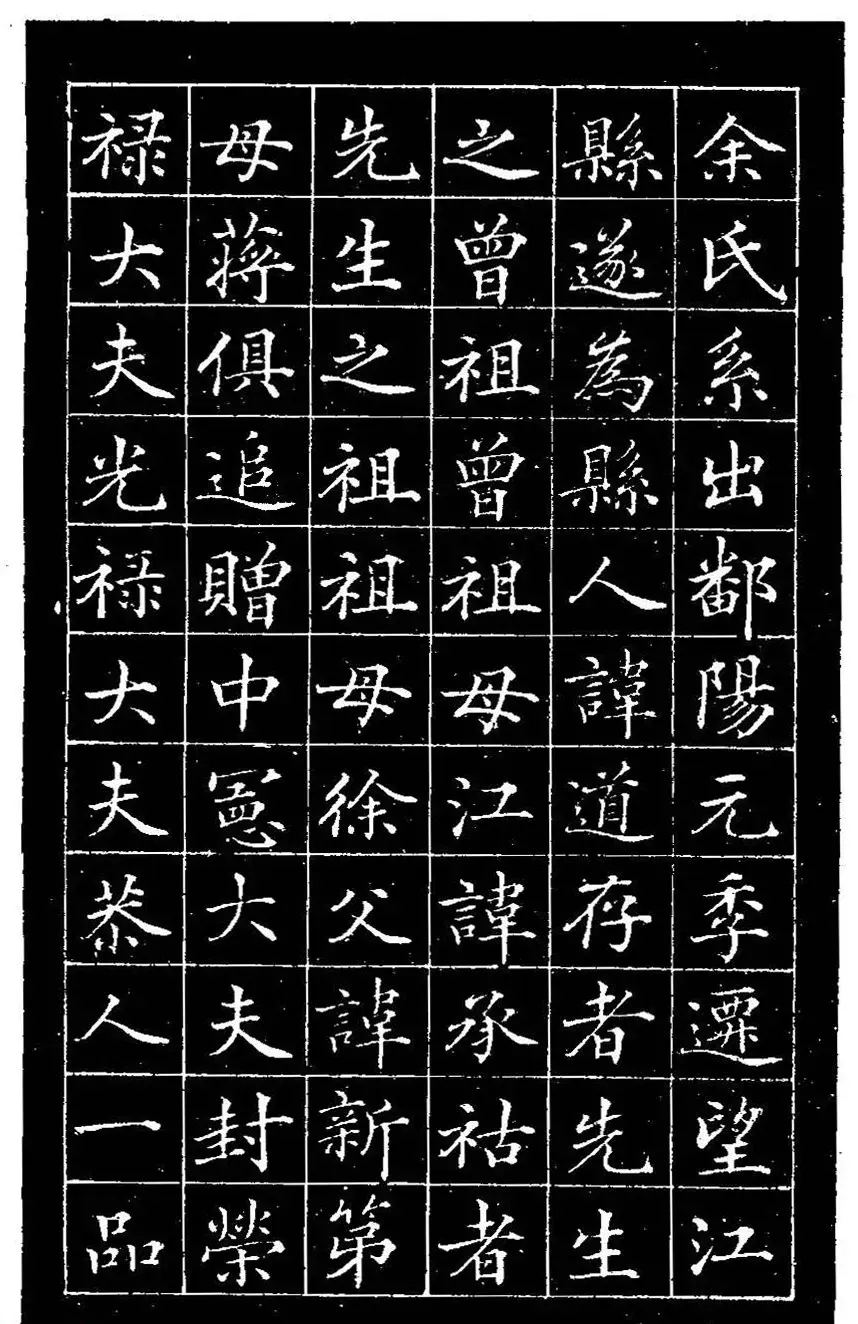 余氏系出鄱陽元季遷望江
縣遂為縣人諱道存者先生
之曾祖曾祖母江諱承祜者
先生之祖祖母徐父諱新第
母蔣俱追贈中憲大夫封榮
祿大夫光祿大夫恭人一品